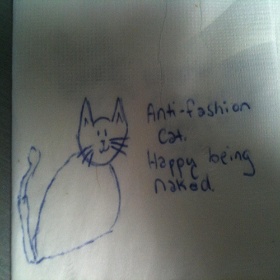 Anti-fashion
Cat.
Happy being
naked